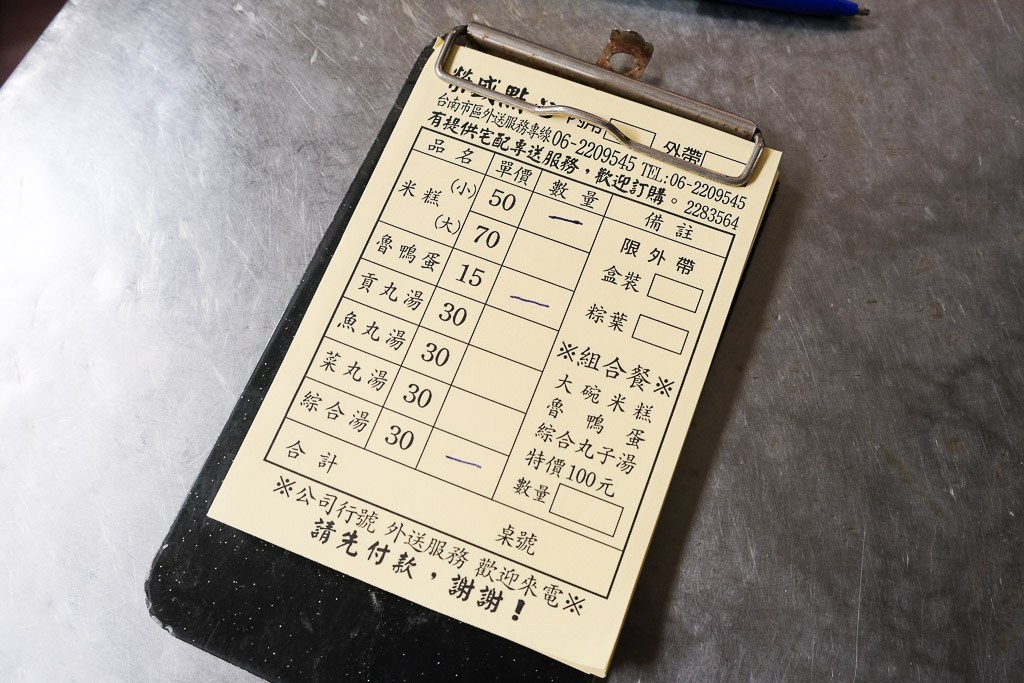 榮盛點心 內用 外帶
台南市區外送服務專線06-2209545 TEL:06-2209545
有提供宅配專送服務，歡迎訂購。2283564
品名 單價 數量 備註
米糕 (小) 50 一
(大) 70
魯鴨蛋 15 一
貢丸湯 30
魚丸湯 30
菜丸湯 30
綜合湯 30 一
合計
限外帶
盒裝
粽葉
※組合餐※
大碗米糕
魯鴨蛋
綜合丸子湯
特價100元
數量
桌號
※公司行號 外送服務 歡迎來電※
請先付款，謝謝！